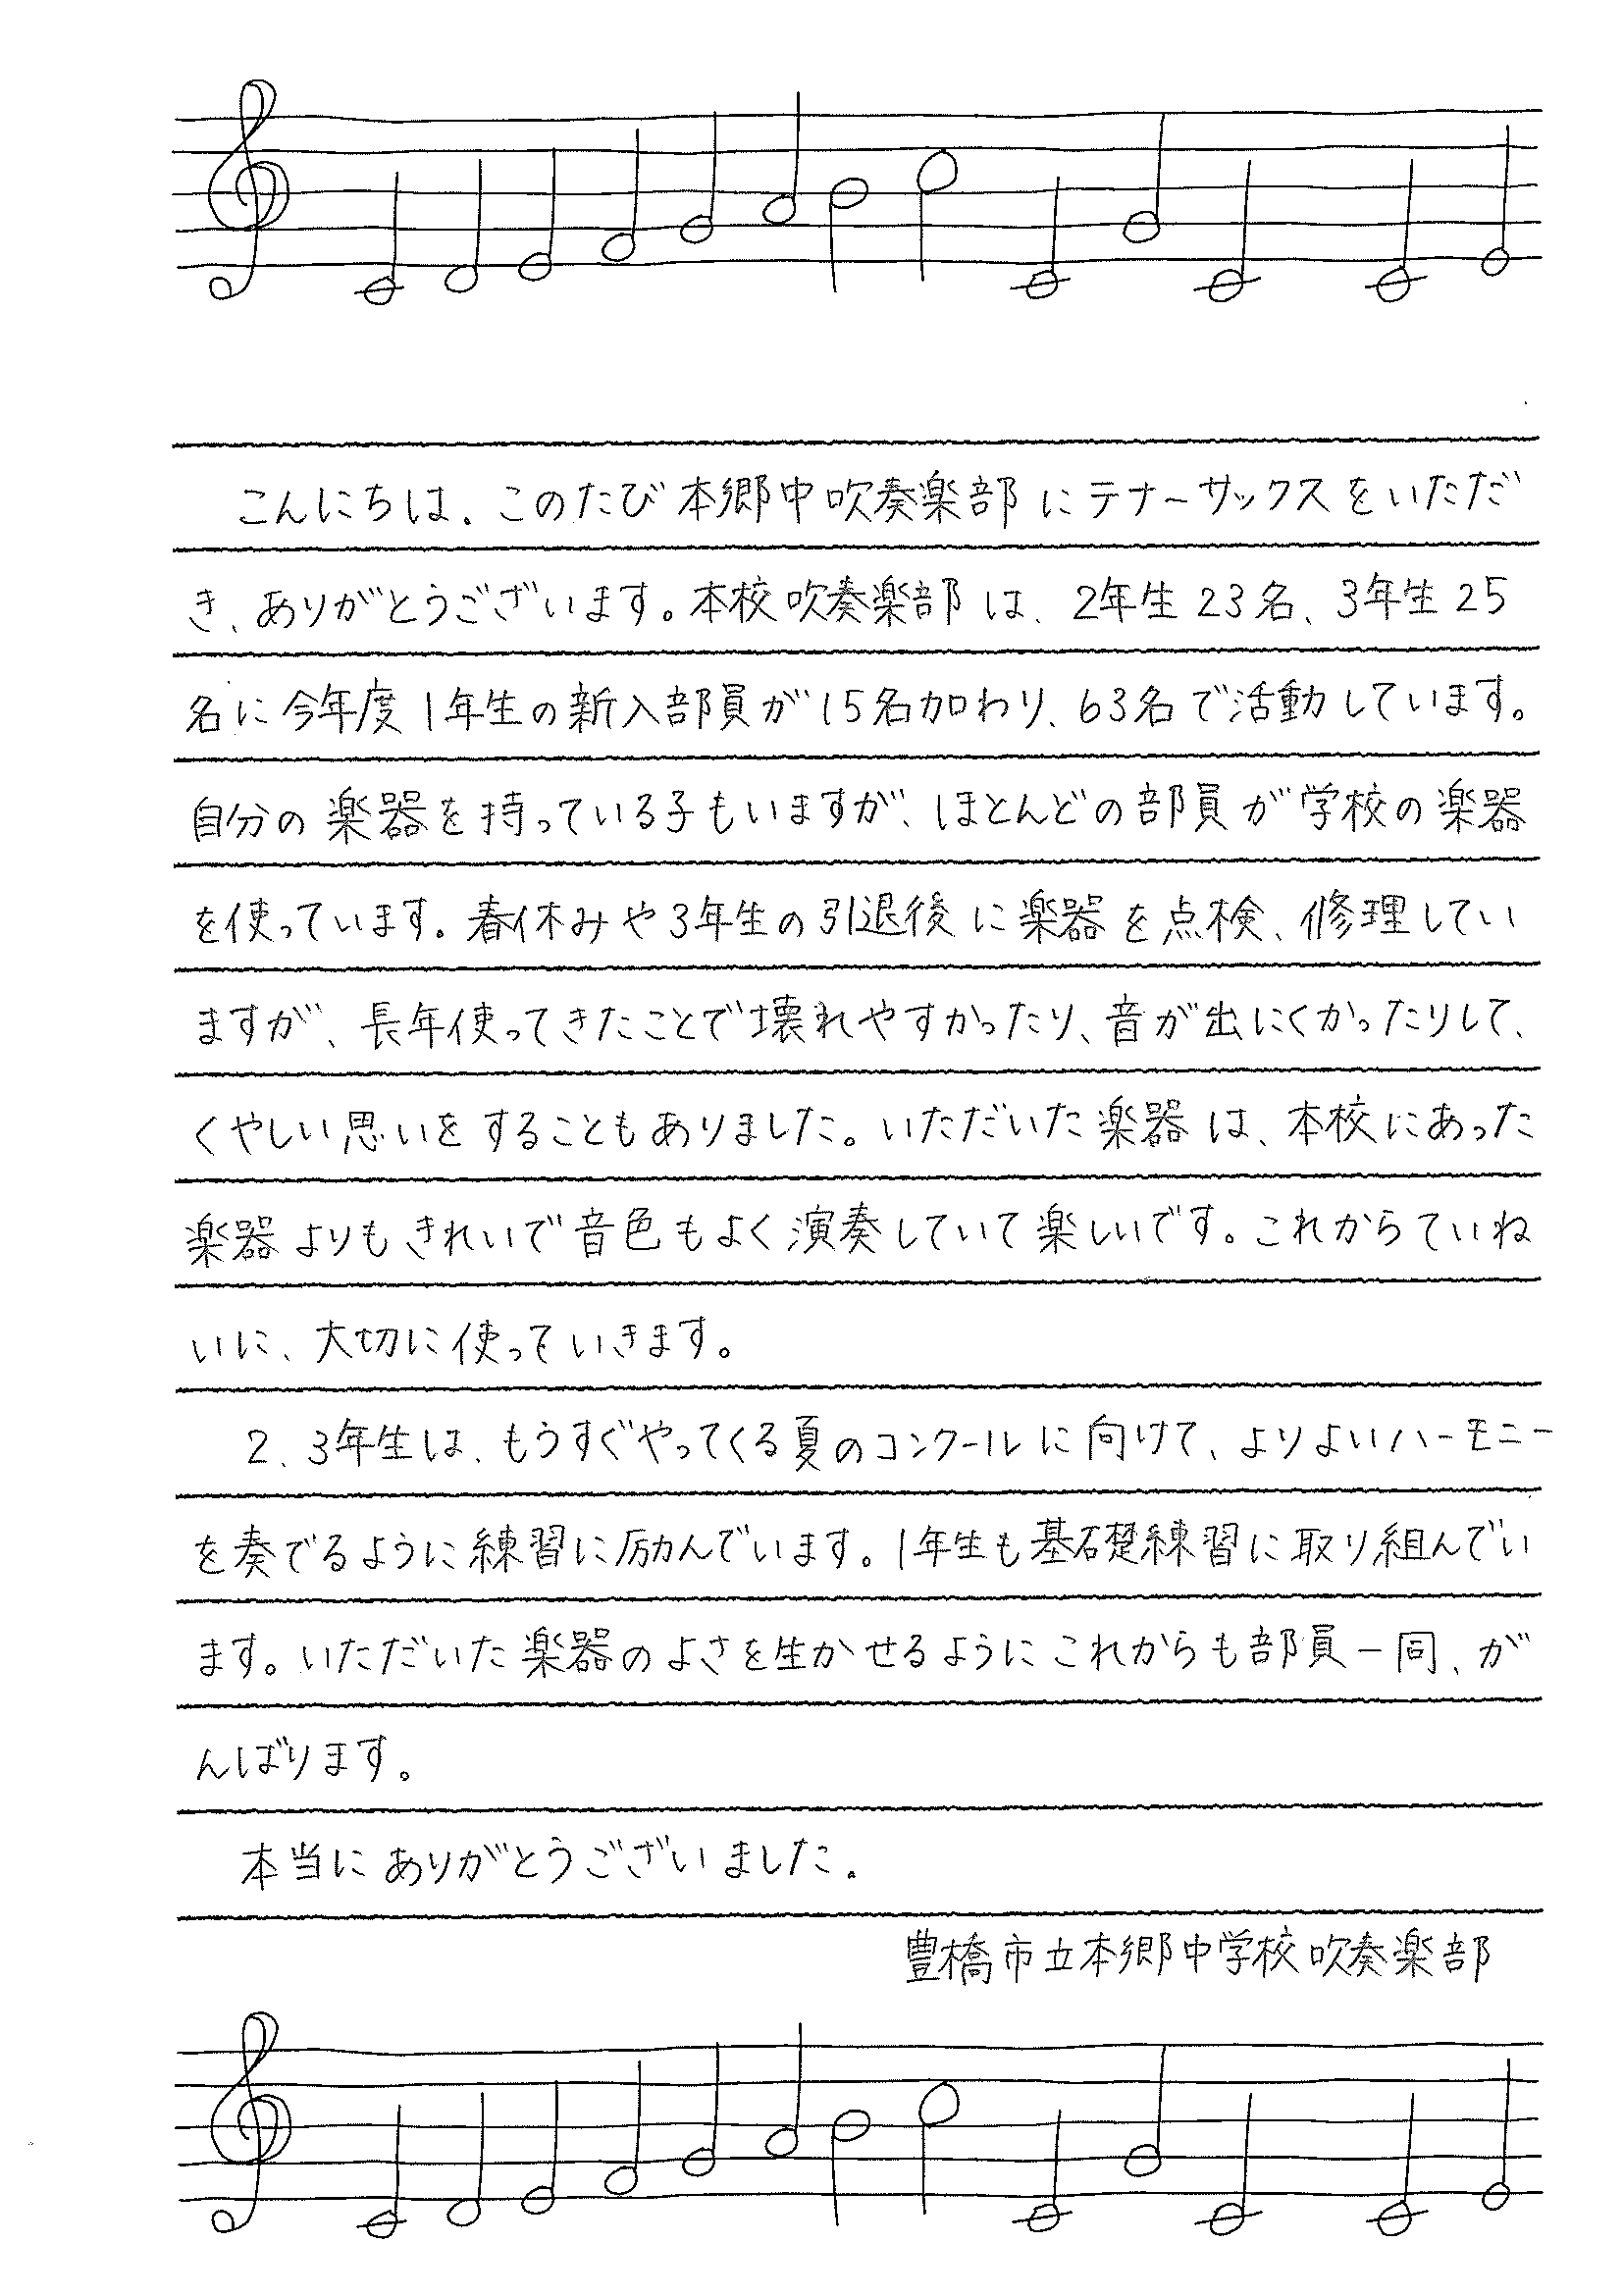 こんにちは。このたび本郷中吹奏楽部にテナーサックスをいただ
き、ありがとうございます。本校吹奏楽部は、2年生23名、3年生25
名に今年度1年生の新入部員が15名加わり、63名で活動しています。
自分の楽器を持っている子もいますが、ほとんどの部員が学校の楽器
を使っています。春休みや3年生の引退後に楽器を点検、修理してい
ますが、長年使ってきたことで壊れやすかったり、音が出にくかったりして、
くやしい思いをすることもありました。いただいた楽器は、本校にあった
楽器よりもきれいで音色もよく演奏していて楽しいです。これからていね
いに、大切に使っていきます。
2、3年生は、もうすぐやってくる夏のコンクールに向けて、よりよいハーモニー
を奏でるように練習に励んでいます。1年生も基礎練習に取り組んでい
ます。いただいた楽器のよさを生かせるようにこれからも部員一同、が
んばります。
本当にありがとうございました。
豊橋市立本郷中学校吹奏楽部